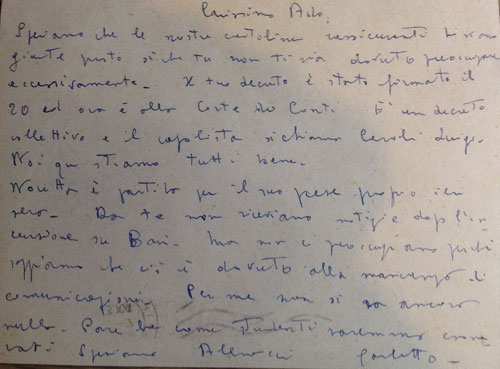 Carissimo Aldo,
Speriamo che le nostre cartoline rassicuranti ti siano
giunte presto sì che tu non ti sia dovuto preoccupare
eccessivamente. Il tuo decreto è stato firmato il
20 ed ora è alla Corte dei Conti. È un decreto
collettivo e il capolista si chiama Luigi.
Noi qui stiamo tutti bene.
è partito per il suo paese proprio ieri
sera. Da te non riceviamo notizie dopo l'in
cursione su Bari. Ma non ci preoccupiamo perché
sappiamo che ciò è dovuto alla mancanza di
comunicazioni. Per me non si sa ancora
nulla. Pare che come studenti saremmo
vati Speriamo Abbracci